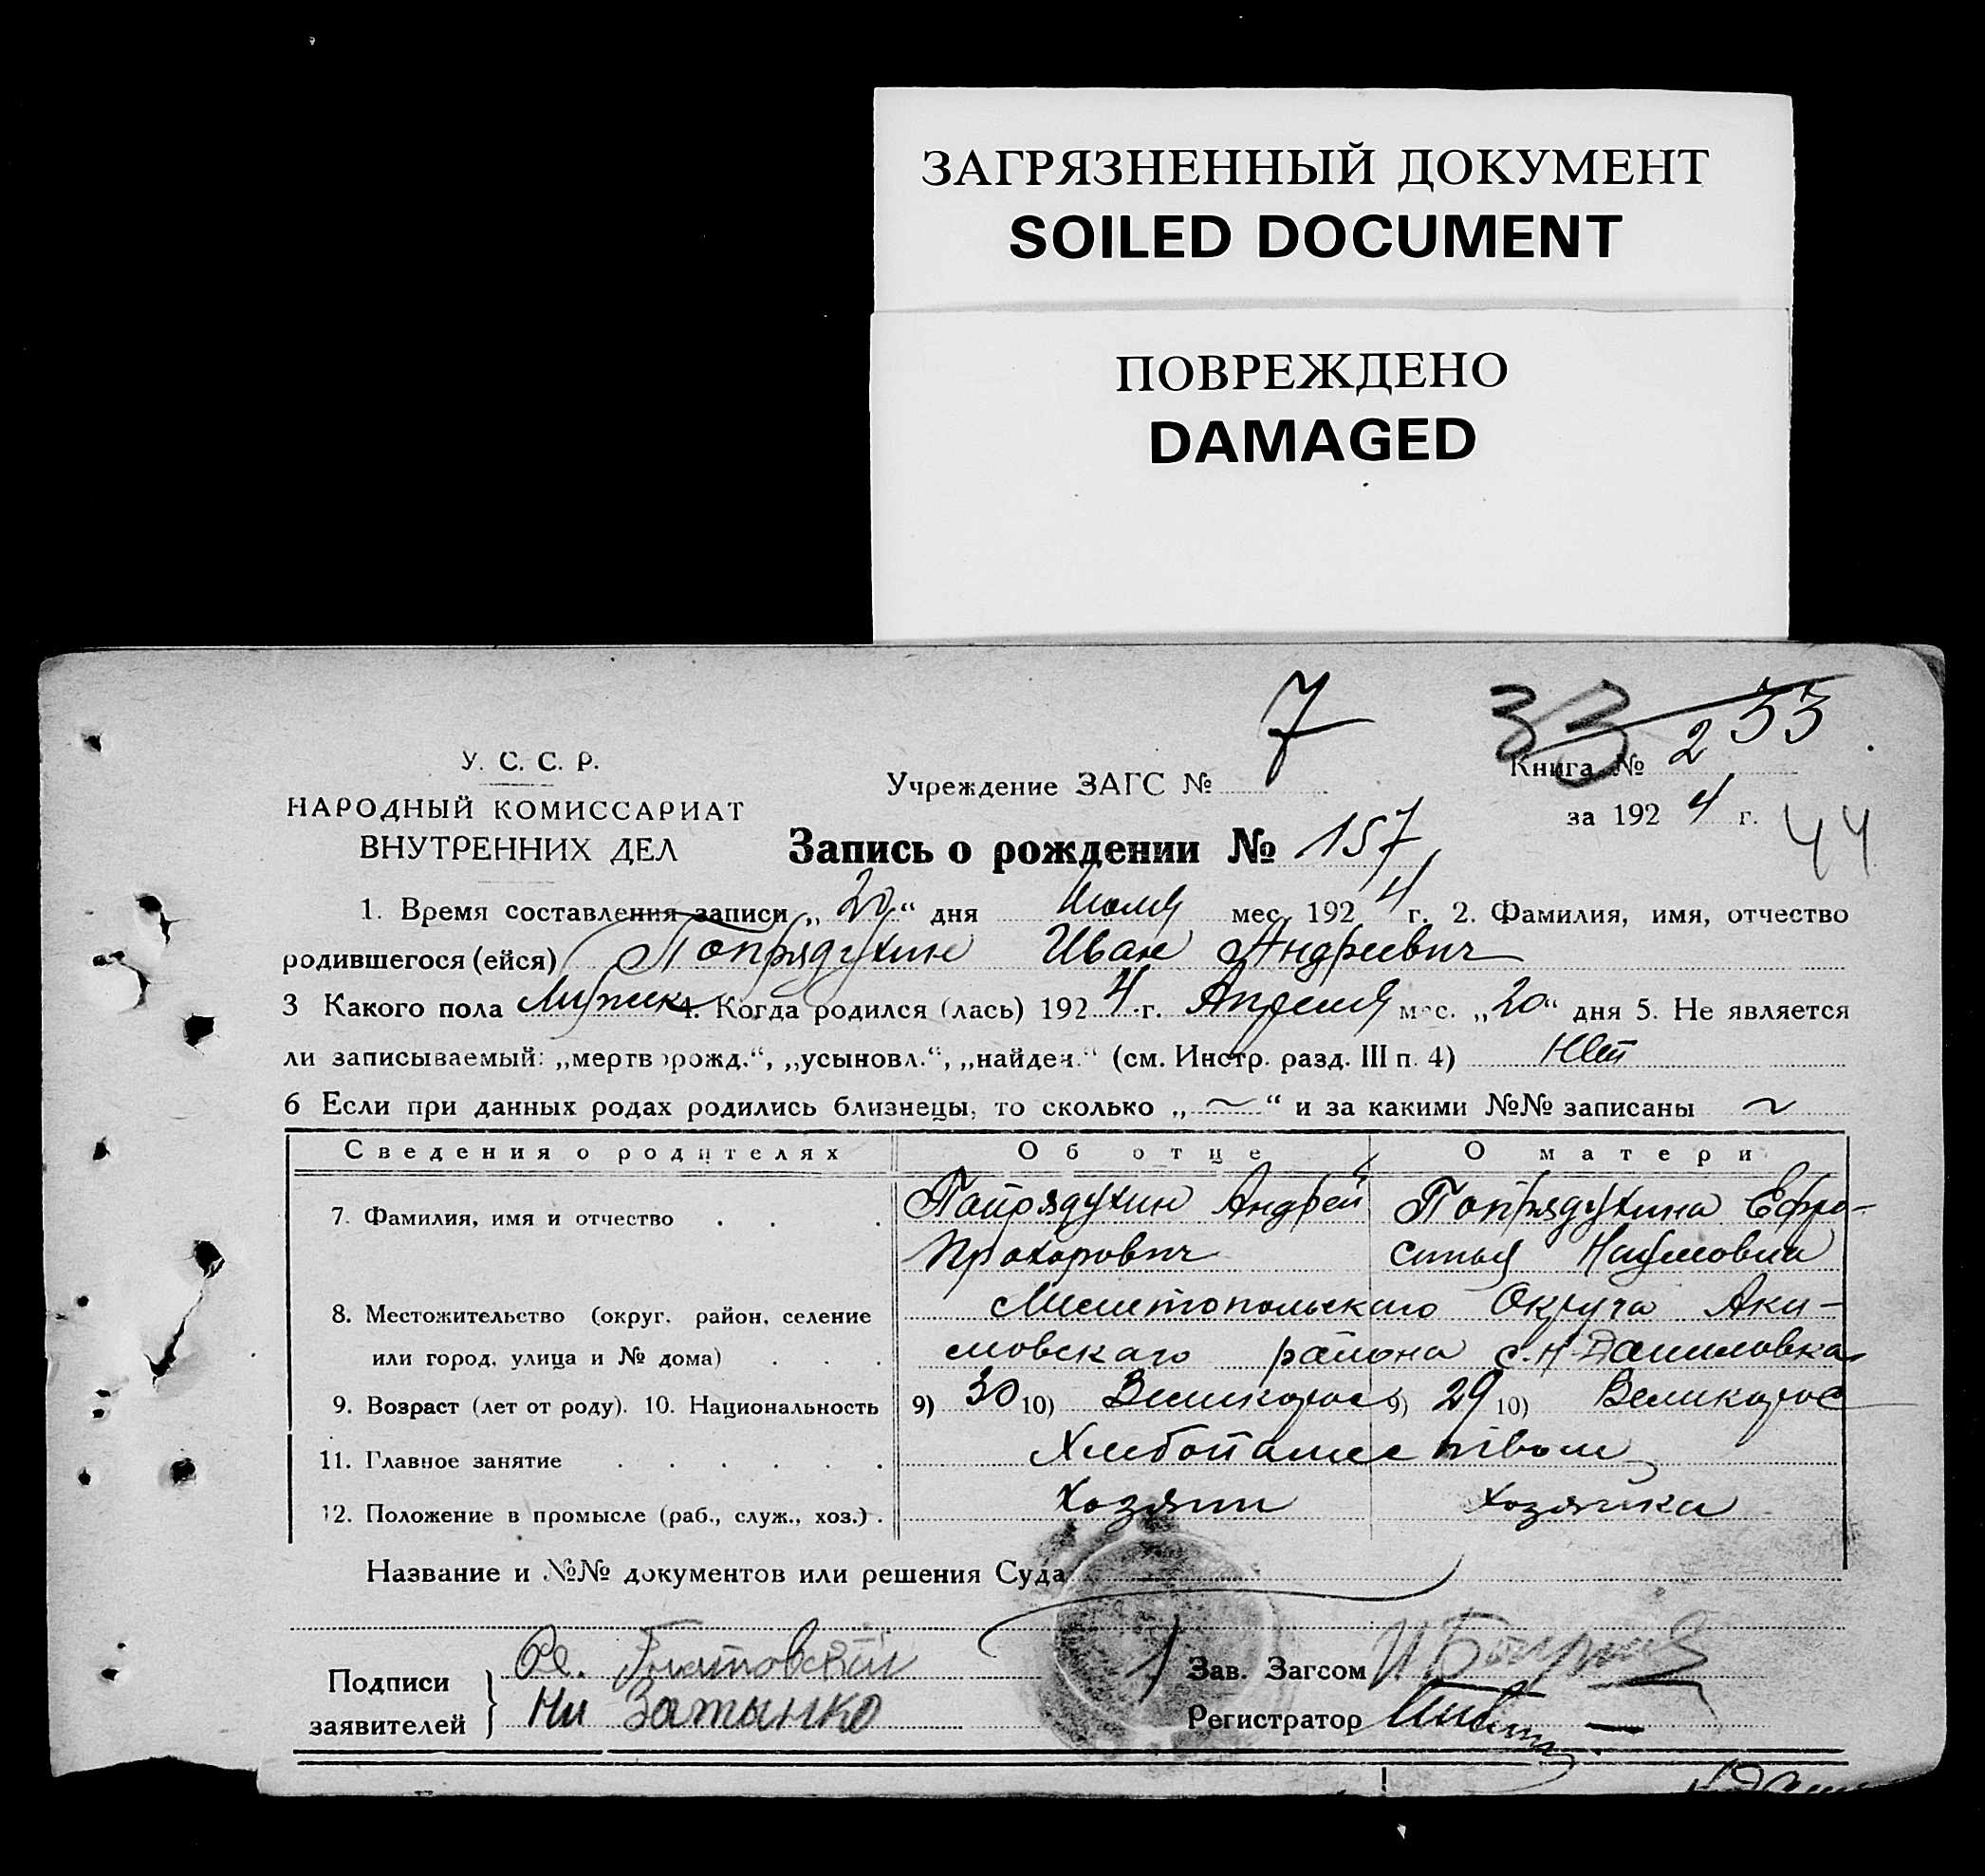 ЗАГРЯЗНЕННЫЙ ДОКУМЕНТ
SOILED DOCUMENT
ПОВРЕЖДЕНО
DAMAGED
7 33 233
У. С. С. Р.
НАРОДНЫЙ КОМИССАРИАТ
ВНУТРЕННИХ ДЕЛ
Учреждение ЗАГС №
Книга №
за 1924 г. 44
Запись о рождении № 157
1. Время составления записи „20“ дня Июля мес. 1924 г. 2. Фамилия, имя, отчество
родившегося (ейся) Попрядухин Иван Андреевич
3 Какого пола Мужск. 4. Когда родился (лась) 1924 г. Апреля мес. „20“ дня 5. Не является
ли записываемый: „мертворожд.“, „усыновл.“, „найден.“ (см. Инстр. разд. III п. 4) Нет
6 Если при данных родах родились близнецы, то сколько „~“ и за какими №№ записаны ~
Сведения о родителях Об отце О матери
7. Фамилия, имя и отчество . . . Попрядухин Андрей Попрядухина Ефро-
Прохорович синья Наумовна
8. Местожительство (округ, район, селение Мелитопольскаго Округа Аки-
или город, улица и № дома) . . . мовскаго района с. Н-Даниловка
9. Возраст (лет от роду). 10. Национальность 9) 30 10) Великорос 9) 29 10) Великорос
11. Главное занятие . . . . . . Хлебопашеством
12. Положение в промысле (раб., служ., хоз.) . Хозяин хозяйка
Название и №№ документов или решения Суда
Подписи
заявителей
Затынко
Зав. Загсом
Регистратор